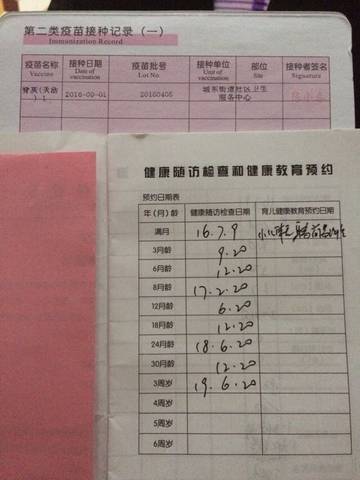 第二类疫苗接种记录（一）
Immunization Record
疫苗名称 接种日期 疫苗批号 接种单位 部位 接种者签名
Vaccine Date of vaccination Lot No. Unit of vaccination Site Signature
脊灰(灭活)1 2016-09-01 20160405 城东街道社区卫生服务中心
健康随访检查和健康教育预约
预约日期表
年(月)龄 健康随访检查日期 育儿健康教育预约日期
满月 16.7.9
3月龄 9.20
6月龄 12.20
8月龄 17.2.20
12月龄 6.20
18月龄 12.20
24月龄 18.6.20
30月龄 12.20
3周岁 19.6.20
4周岁
5周岁
6周岁